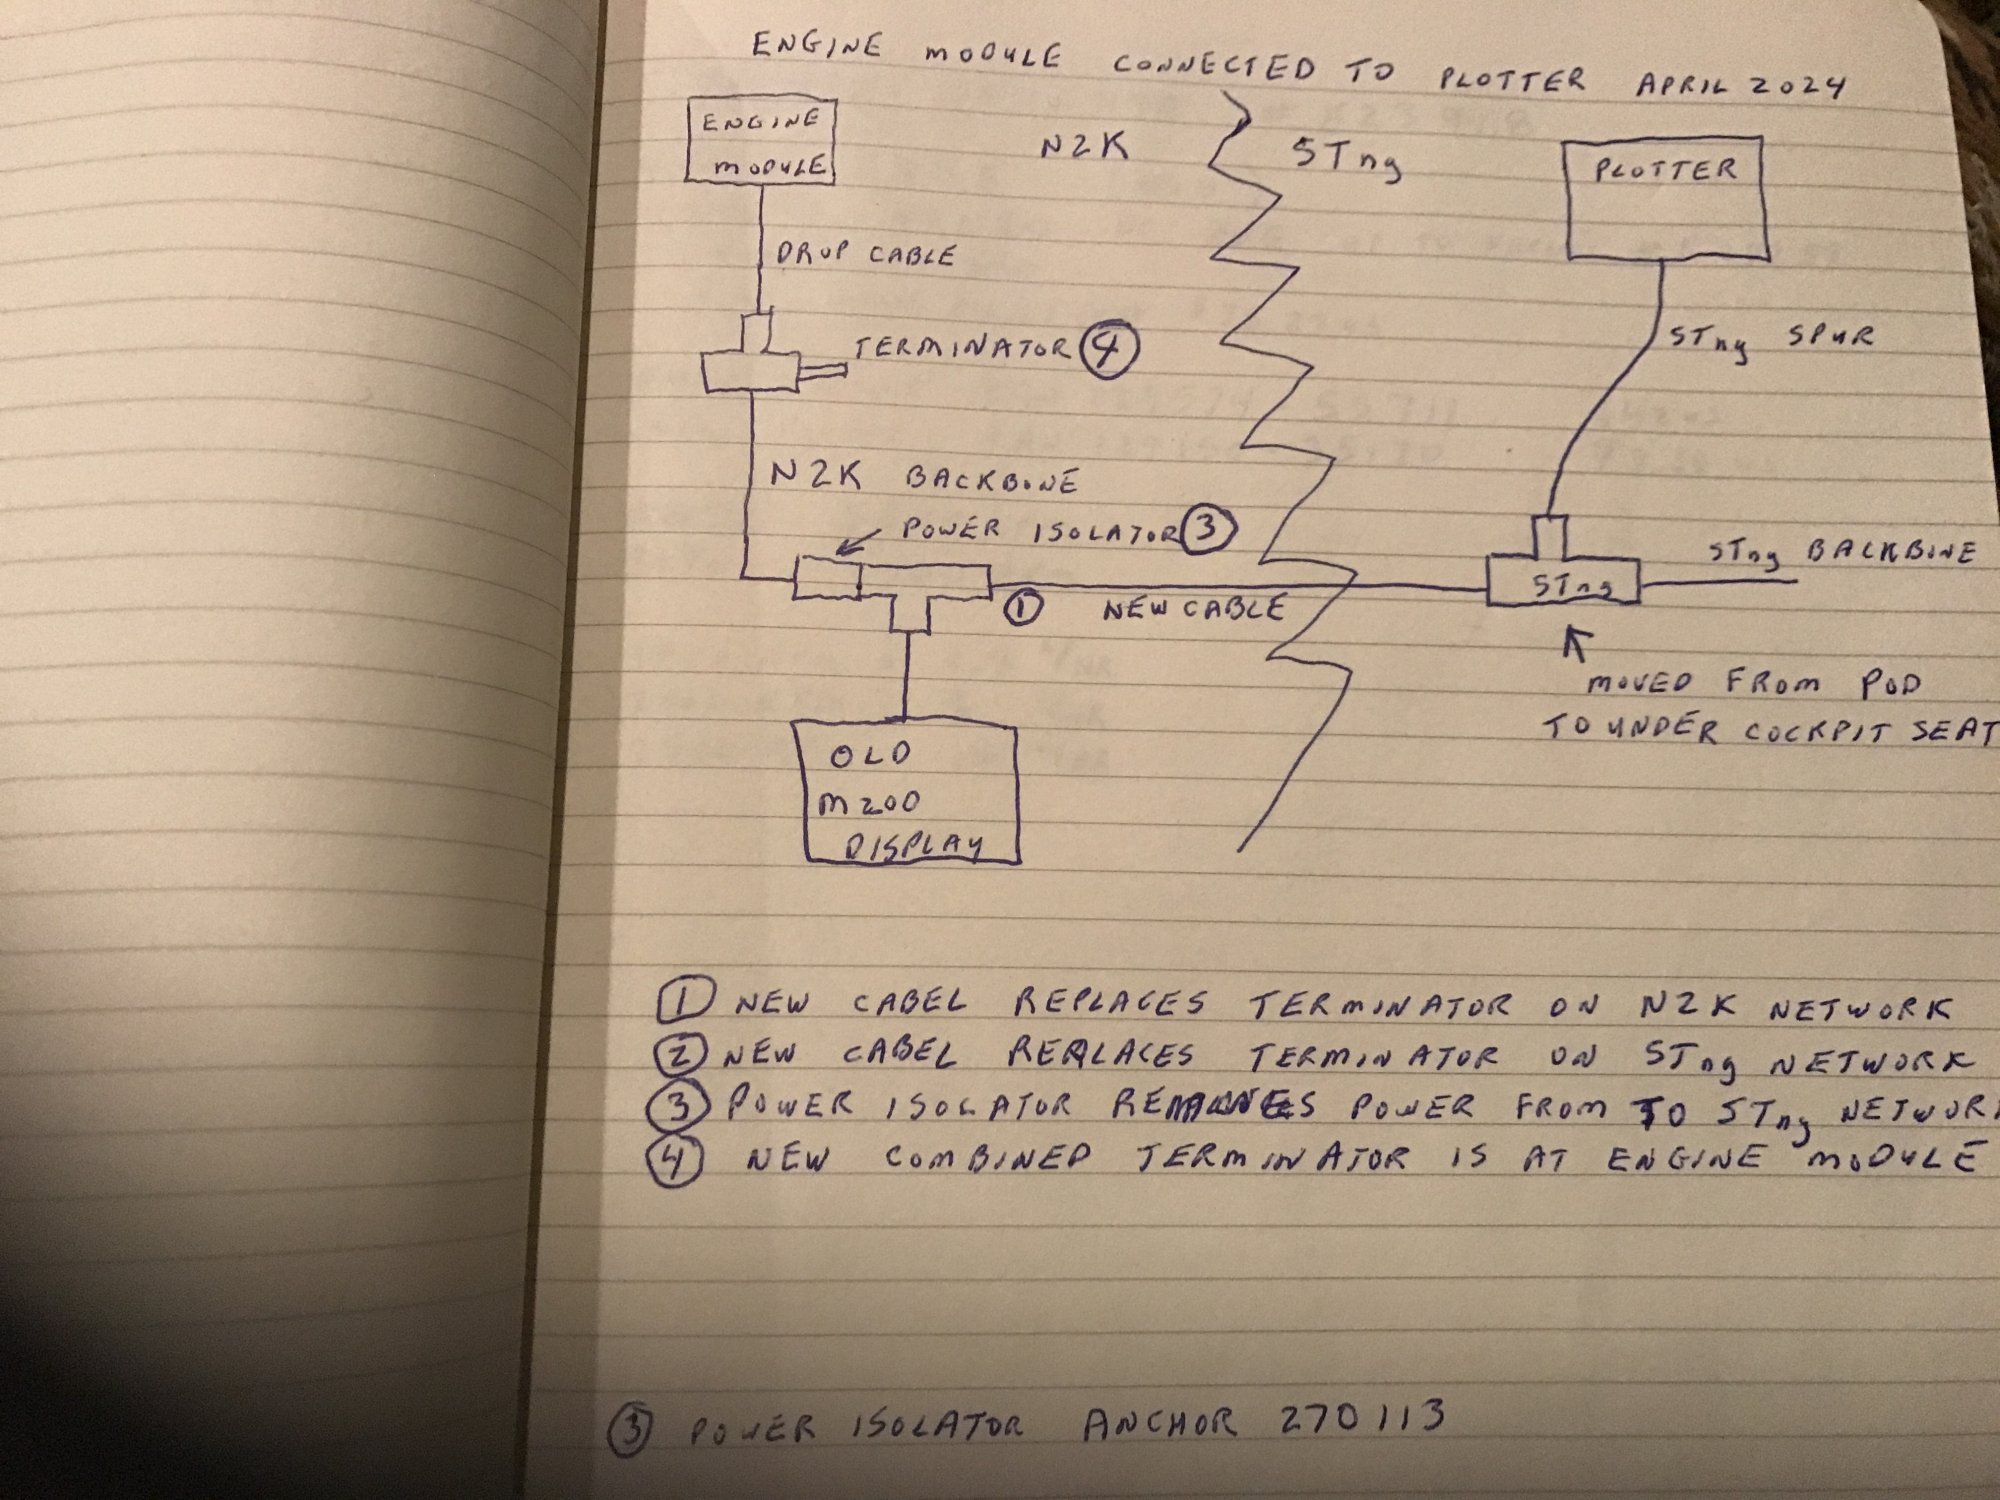 ENGINE MODULE CONNECTED TO PLOTTER APRIL 2024
ENGINE
MODULE
N2K
STng
PLOTTER
DROP CABLE
TERMINATOR 4
STng SPUR
N2K BACKBONE
POWER ISOLATOR 3
STng BACKBONE
STng
1 NEW CABLE
MOVED FROM POD
TO UNDER COCKPIT SEAT
OLD
M200
DISPLAY
1 NEW CABEL REPLACES TERMINATOR ON N2K NETWORK
2 NEW CABEL REPLACES TERMINATOR ON STng NETWORK
3 POWER ISOLATOR POWER FROM TO STng NETWORK
4 NEW COMBINED TERMINATOR IS AT ENGINE MODULE
3 POWER ISOLATOR ANCHOR 270113